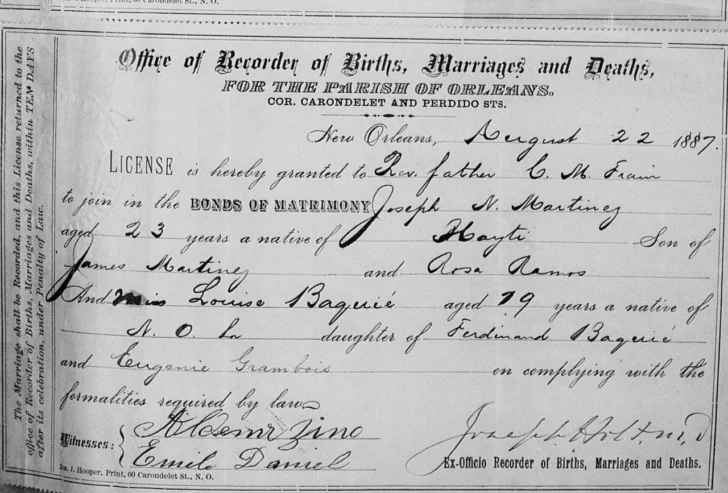 J. Hooper, Print, 60 Carondelet St., N. O.
Office of Recorder of Births, Marriages and Deaths,
FOR THE PARISH OF ORLEANS,
COR. CARONDELET AND PERDIDO STS.
New Orleans, August 22 1887.
LICENSE is hereby granted to Rev. father C. M. Frain
to join in the BONDS OF MATRIMONY Joseph N. Martinez
aged 23 years a native of Hayti Son of
James Martinez and Rosa Ramos
And Miss Louise Baquié aged 19 years a native of
N. O. La daughter of Ferdinand Baquié
and Eugenie Grambois on complying with the
formalities required by law
Witnesses: Zino Joseph
Emile Daniel Ex-Officio Recorder of Births, Marriages and Deaths.
Jos. J. Hooper, Print, 60 Carondelet St., N. O.
The Marriage shall be Recorded, and this License returned to the
office of Recorder of Births, Marriages and Deaths, within TEN DAYS
after its celebration, under Penalty of Law.